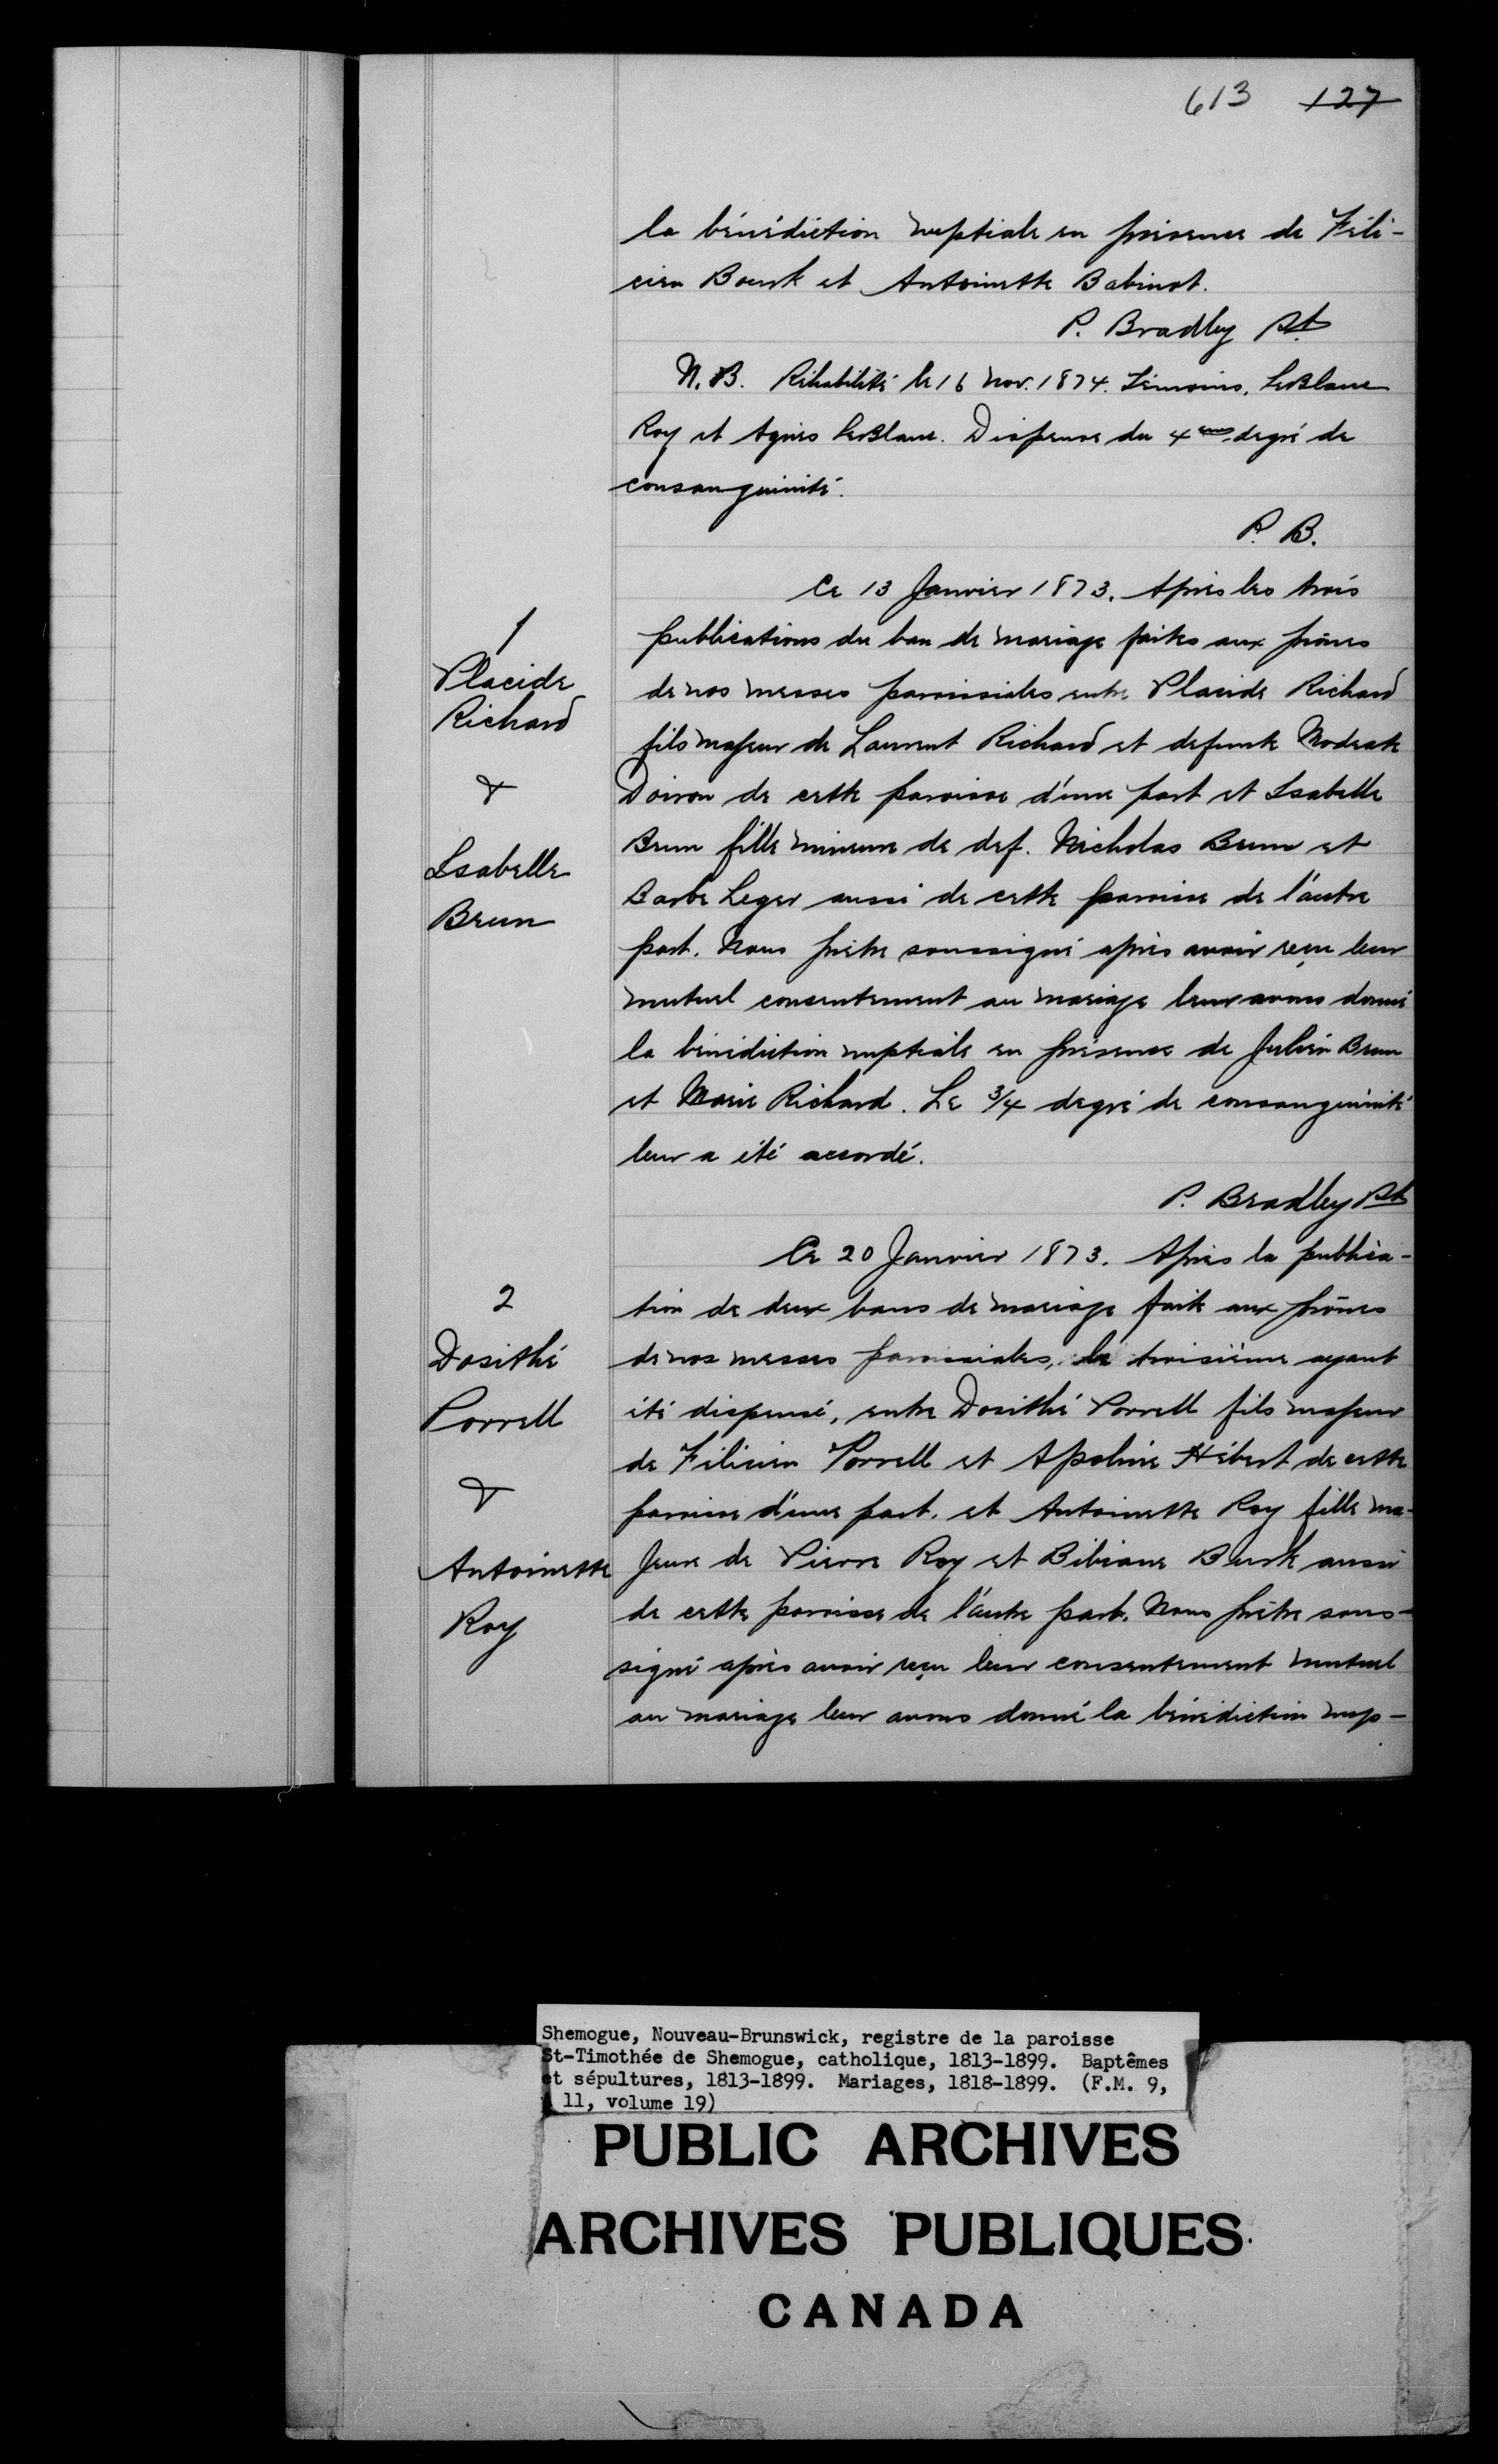 613 127
la bénédiction nuptiale en présence de Féli-
cien Bourk et Antoinette Babinot.
P. Bradley Pt.
N.B. Réhabilité le 16 nov. 1874. Témoins, LeBlanc
Roy et Agnès LeBlanc. Dispense du 4ème degré de
consanguinité.
P. B.
Ce 13 Janvier 1873. Après les trois
publications du ban de mariage faites aux prônes
de nos messes paroissiales entre Placide Richard
fils majeur de Laurent Richard et defunte Modeste
Doiron de cette paroisse d'une part et Isabelle
Brun fille mineure de def. Nicholas Brun et
Barbe Leger aussi de cette paroisse de l'autre
part. Nous prêtre soussigné après avoir reçu leur
mutuel consentement au mariage leur avons donné
la bénédiction nuptiale en présence de Julien Brun
et Marie Richard. Le 3/4 degré de consanguinité
leur a été accordé.
P. Bradley Pt
1
Placide
Richard
&
Isabelle
Brun
Ce 20 Janvier 1873. Après la publica-
tion de deux bans de mariage faite aux prônes
de nos messes paroissiales, le troisième ayant
été dispensé, entre Dosithé Porrell fils majeur
de Félicien Porrell et Apoline Hébert de cette
paroisse d'une part. et Antoinette Roy fille ma-
jeure de Pierre Roy et Bibiane Burk aussi
de cette paroisse de l'autre part. Nous prêtre sous-
signé après avoir reçu leur consentement mutuel
au mariage leur avons donné la bénédiction nup-
2
Dosithé
Porrell
&
Antoinette
Roy
Shemogue, Nouveau-Brunswick, registre de la paroisse
St-Timothée de Shemogue, catholique, 1813-1899. Baptêmes
et sépultures, 1813-1899. Mariages, 1818-1899. (F.M. 9,
11, volume 19)
PUBLIC ARCHIVES
ARCHIVES PUBLIQUES
CANADA